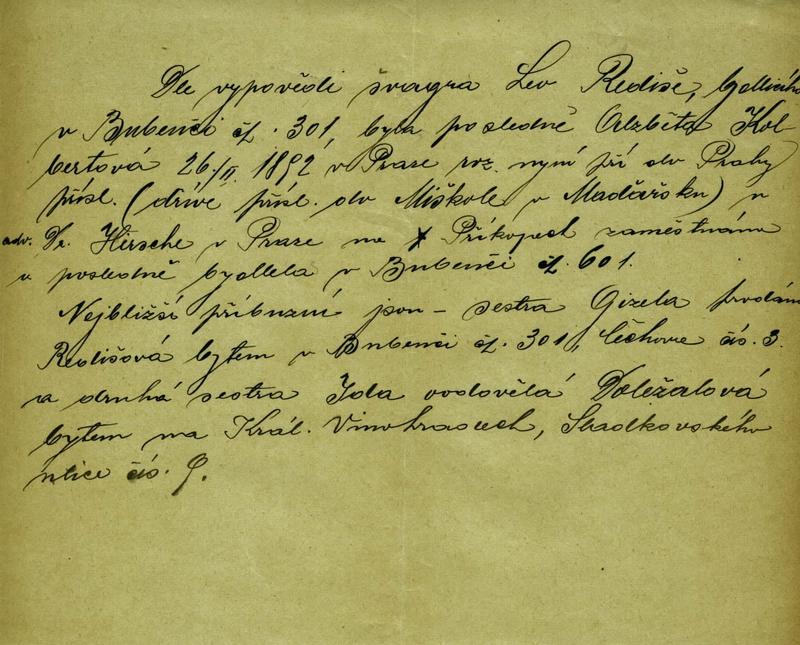 Dle výpovědi švagra Lev Rediše, bydlícího
v Bubenči čp. 301, byla posledně Alžběta Kol-
bertová 26./II. 1892 v Praze roz. nyní pří do Prahy
přísl. (dříve přísl. do Miškole v Maďarsku) u
adv. Dr. Hirsche v Praze na Příkopech zaměstnána
a posledně bydlela v Bubenči čp. 601.
Nejbližší příbuzní jsou – sestra Gizela provdaná
Redišová bytem v Bubenči čp. 301, Čechova čís. 3.
a druhá sestra Ida ovdovělá Doležalová
bytem na Král. Vinohradech, Sladkovského
ulice čís. 9.